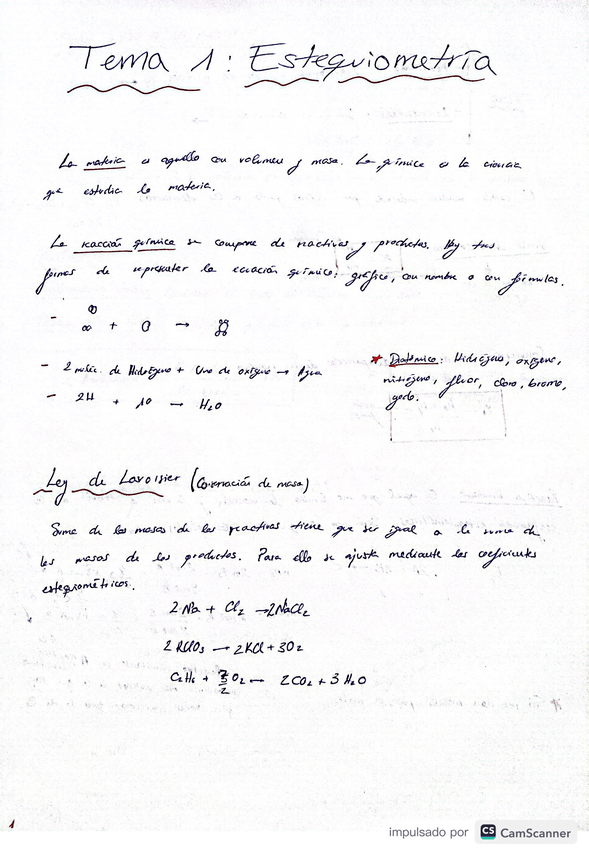 Tema 1: Estequiometría
La materia es aquello con volumen y masa. La química es la ciencia
que estudia la materia.
La reacción química se compone de reactivos y productos. Hay tres
formas de representar la ecuación química: gráfico, con nombre o con fórmulas.
- + →
- 2 moléc. de Hidrógeno + Uno de oxígeno → Agua
- 2H + 1O → H₂O
* Diatómico: Hidrógeno, oxígeno,
nitrógeno, fluor, cloro, bromo,
yodo.
Ley de Lavoisier (Conservación de masa)
Suma de las masas de los reactivos tiene que ser igual a la suma de
las masas de los productos. Para ello se ajusta mediante los coeficientes
estequiométricos.
2Na + Cl₂ → 2NaCl₂
2KClO₃ → 2KCl + 3O₂
C₂H₆ + 7/2 O₂ → 2CO₂ + 3H₂O
1
impulsado por CS CamScanner